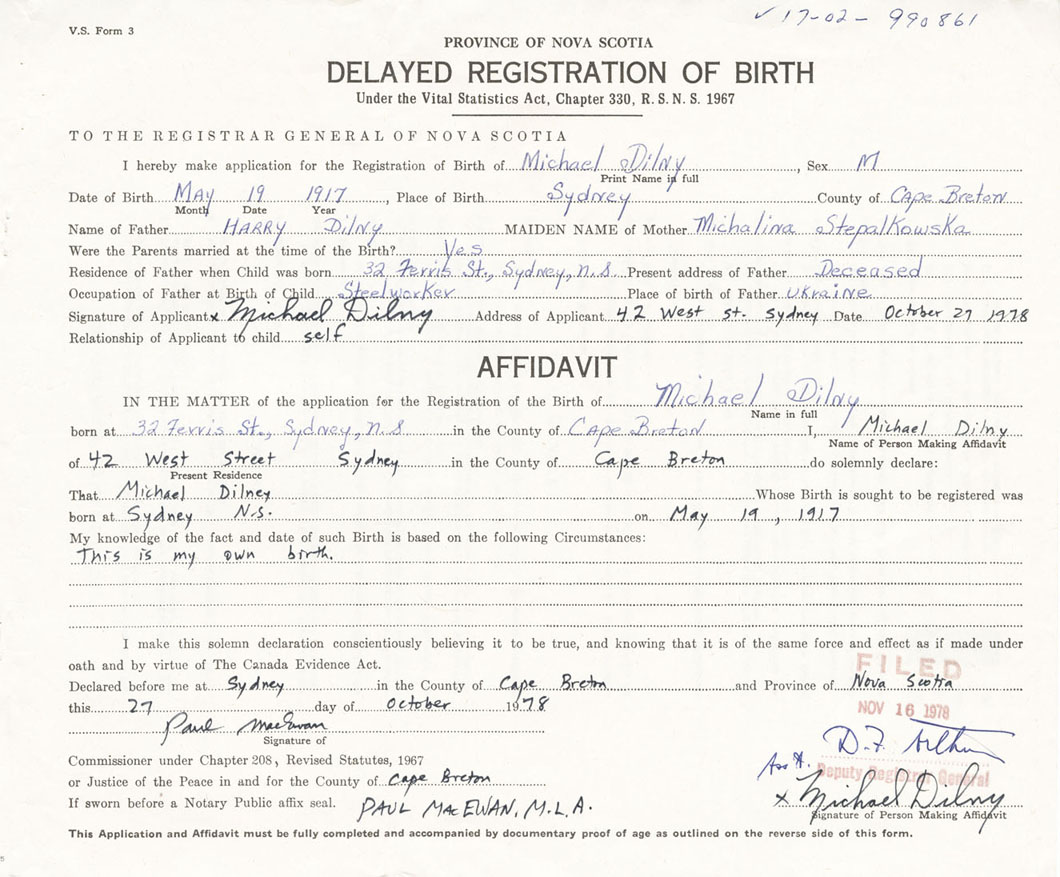 V.S. Form 3
✓ 17-02- 990861
PROVINCE OF NOVA SCOTIA
DELAYED REGISTRATION OF BIRTH
Under the Vital Statistics Act, Chapter 330, R. S. N. S. 1967
TO THE REGISTRAR GENERAL OF NOVA SCOTIA
I hereby make application for the Registration of Birth of Michael Dilny, Sex M
Print Name in full
Date of Birth MAY 19 1917, Place of Birth Sydney County of Cape Breton
Month Date Year
Name of Father HARRY Dilny MAIDEN NAME of Mother Michalina Stepalkowska
Were the Parents married at the time of the Birth? Yes
Residence of Father when Child was born 32 Ferris St., Sydney, N.S. Present address of Father Deceased
Occupation of Father at Birth of Child Steelworker Place of birth of Father Ukraine
Signature of Applicant x Michael Dilny Address of Applicant 42 West St. Sydney Date October 27 1978
Relationship of Applicant to child self
AFFIDAVIT
IN THE MATTER of the application for the Registration of the Birth of Michael Dilny
Name in full
born at 32 Ferris St., Sydney, N.S in the County of Cape Breton I, Michael Dilny
Name of Person Making Affidavit
of 42 West Street Sydney in the County of Cape Breton do solemnly declare:
Present Residence
That Michael Dilney Whose Birth is sought to be registered was
born at Sydney N.S. on May 19, 1917
My knowledge of the fact and date of such Birth is based on the following Circumstances:
This is my own birth.
I make this solemn declaration conscientiously believing it to be true, and knowing that it is of the same force and effect as if made under
oath and by virtue of The Canada Evidence Act.
FILED
Declared before me at Sydney in the County of Cape Breton and Province of Nova Scotia
this 27 day of October 1978
NOV 16 1978
Paul MacEwan
Signature of
D.F.
Commissioner under Chapter 208, Revised Statutes, 1967
Ass't. Deputy Registrar General
or Justice of the Peace in and for the County of Cape Breton
x Michael Dilny
If sworn before a Notary Public affix seal. PAUL MACEWAN, M.L.A.
Signature of Person Making Affidavit
This Application and Affidavit must be fully completed and accompanied by documentary proof of age as outlined on the reverse side of this form.